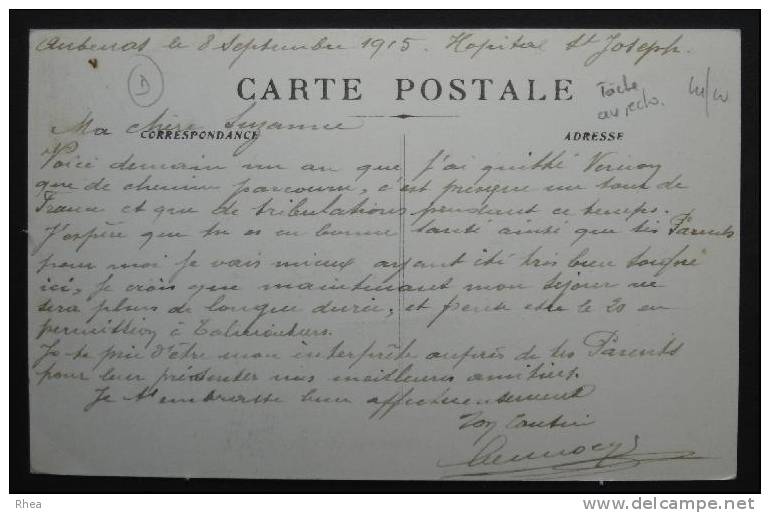 Aubenas le 8 Septembre 1915. Hopital St Joseph.
D
CARTE POSTALE
Tache
au recto.
Ma chère Suzanne
CORRESPONDANCE
ADRESSE
Voici demain un an que j'ai quitté Vernon
que de chemin parcouru, c'est presque un tour de
France et que de tribulations pendant ce temps.
J'espère que tu es en bonne santé ainsi que tes Parents
pour moi je vais mieux ayant été très bien soigné
ici, je crois que maintenant mon séjour ne
sera plus de longue durée, et peut etre le 20 en
permission à
Je te prie d'être mon interprète auprès de tes Parents
pour leur présenter nos meilleures amitiés.
Je t'embrasse bien affectueusement
Ton Cousin
Rhea
www.delcampe.net